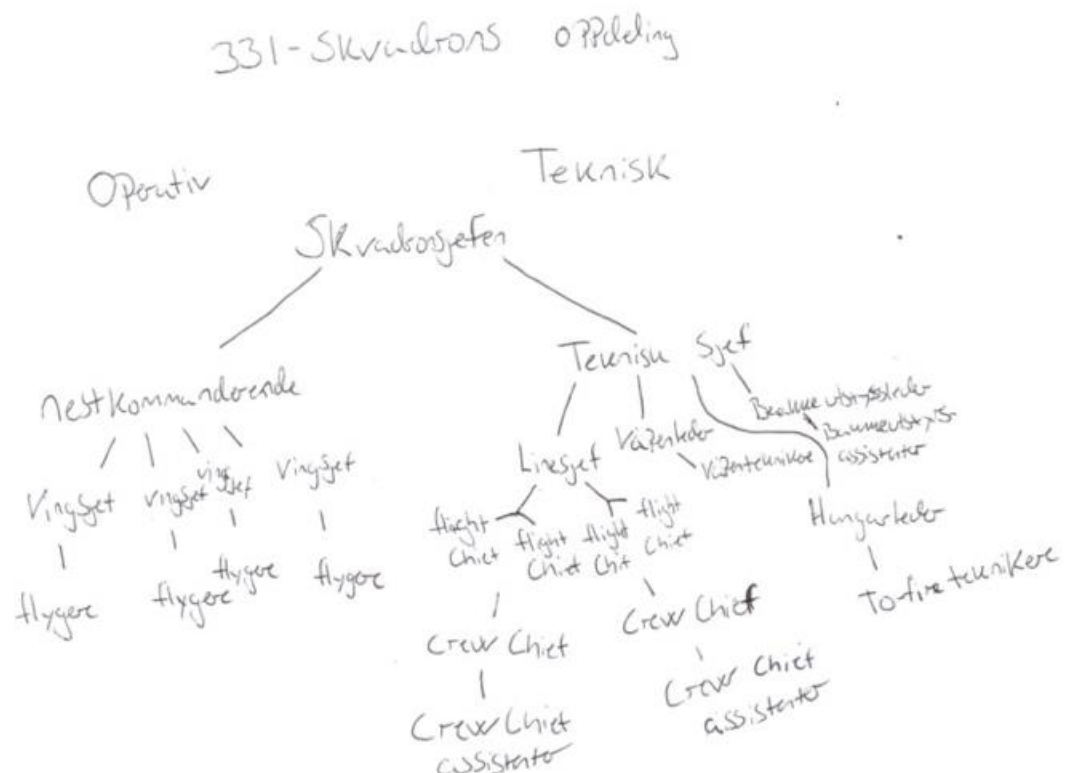 331-Skvadrons oppdeling
Operativ
Teknisk
Skvadronsjefen
Teknisk Sjef
nestkommanderende
Vingsjef
Vingsjef
ving
sjef
Vingsjef
flygere
flygere
flygere
flygere
Linesjef
Våpenleder
Våpenteknikere
assistenter
Hangarleder
To-fire teknikere
flight
Chief
flight
Chief
flight
Chif
flight
Chief
Crew Chief
Crew Chief
assistenter
Crew Chief
Crew Chief
assistenter